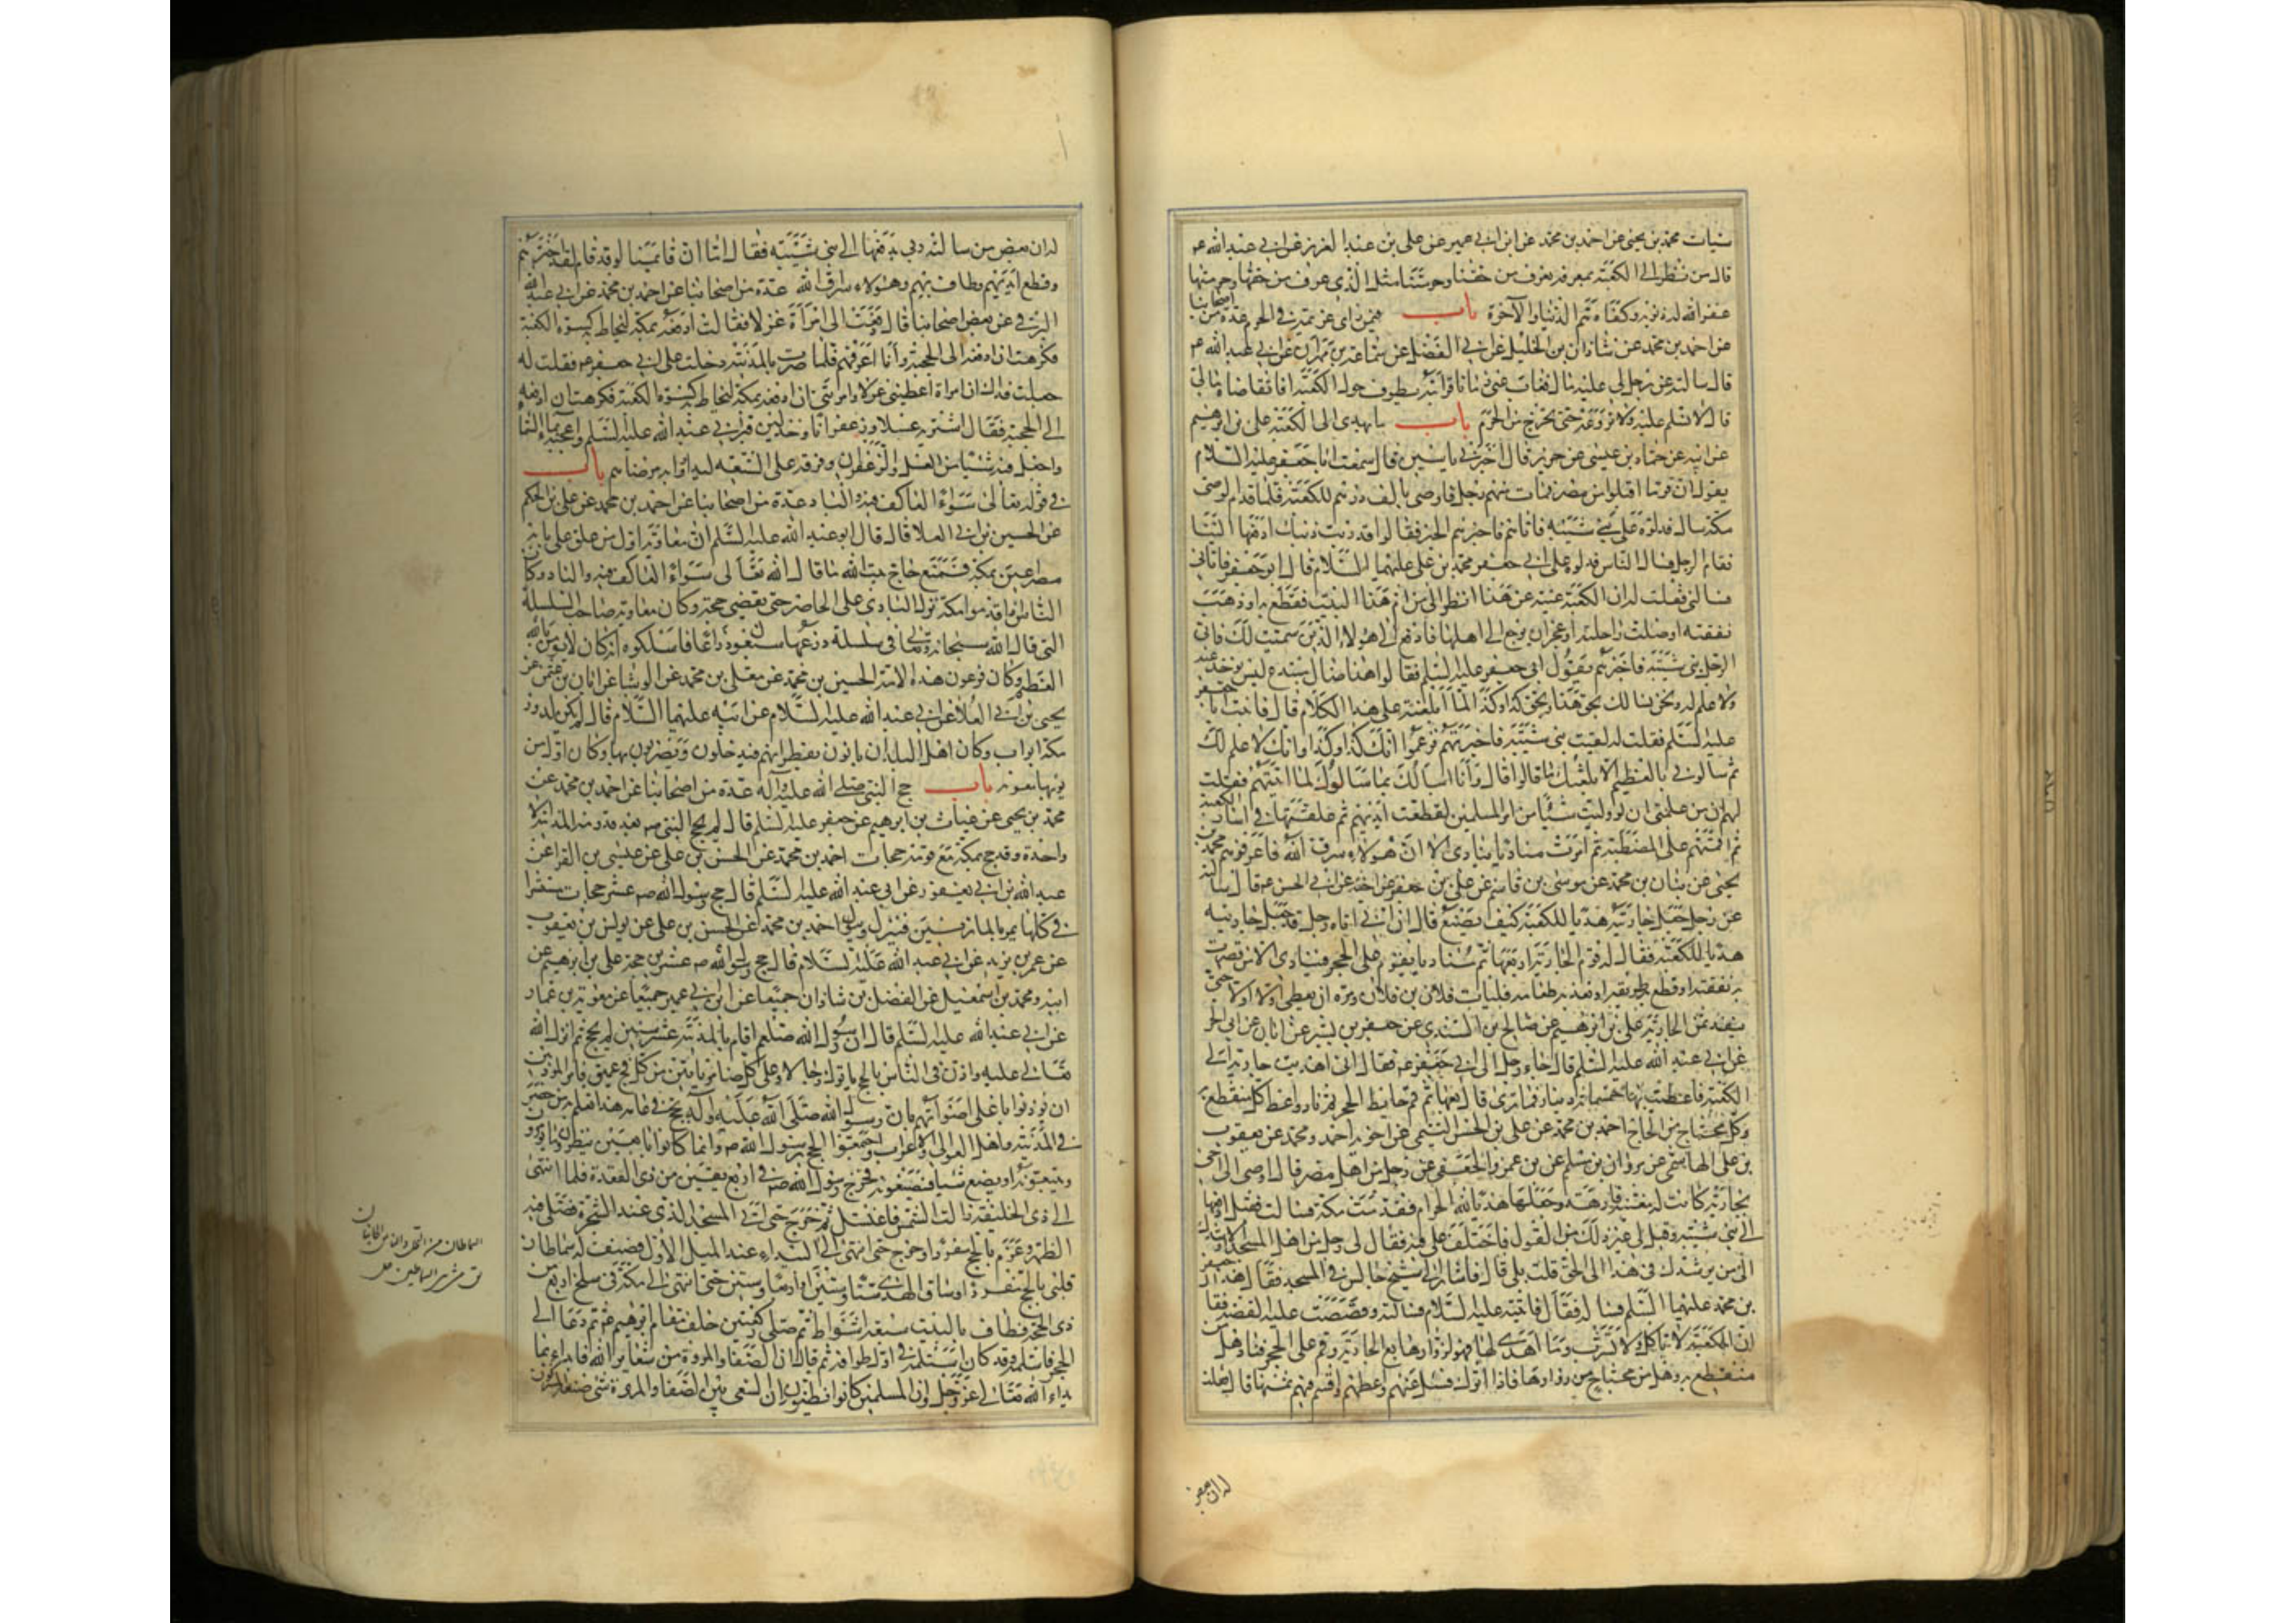 سيات محمد بن يحيى عن احمد بن محمد عن ابن ابي عمير عن علي بن عبد العزيز عن ابي عبد الله ع
قال من نظر الى الكعبة بمعرفة فعرف من حقنا وحرمتنا مثل الذي عرف من حقها وحرمتها
غفر الله له ذنوبه وكفاه هم الدنيا والآخرة باب فيمن راى غريمه في الحرم عدة من اصحابنا
عن احمد بن محمد عن شاذان بن الخليل ابي الفضل عن سماعة بن مهران عن ابي عبد الله ع
قال سالته عن رجل لي عليه مال فغاب عني زمانا فرايته يطوف حول الكعبة افاتقاضاه مالي
قال لا تسلم عليه ولا تروعه حتى يخرج من الحرم باب ما يهدى الى الكعبة علي بن ابرهيم
عن ابيه عن حماد بن عيسى عن حريز قال اخبرني ياسين قال سمعت ابا جعفر عليه السلام
يقول ان قوما اقبلوا من مصر فمات منهم رجل فاوصى بالف درهم للكعبة فلما قدم الوصي
مكة سال فدلوه على بني شيبة فاتاهم فاخبرهم الخبر فقالوا قد برئت ذمتك ادفعها الينا
فقام الرجل فسال الناس فدلوه على ابي جعفر محمد بن علي عليهما السلام قال ابو جعفر فاتاني
فسالني فقلت له ان الكعبة غنية عن هذا انظر الى من ام هذا البيت فقطع به او ذهبت
نفقته او ضلت راحلته او عجز ان يرجع الى اهله فادفعها الى هؤلاء الذين سميت لك فاتى
الرجل بني شيبة فاخبرهم بقول ابي جعفر عليه السلم فقالوا هذا ضال مبتدع ليس يؤخذ عنه
ولا علم له ونحن نسالك بحق هذا وبحق كذا وكذا لما ابلغته عنا هذا الكلام قال فاتيت ابا جعفر
عليه السلم فقلت له لقيت بني شيبة فاخبرتهم فزعموا انك كذا وكذا وانك لا علم لك
ثم سالوني بالعظيم الا بلغتك ما قالوا قال وانا اسالك بما سالوك لما اتيتهم فقلت
لهم ان من علمي ان لو وليت شيئا من امر المسلمين لقطعت ايديهم ثم علقتها في استار الكعبة
ثم اقمتهم على المصطبة ثم امرت مناديا ينادي الا ان هؤلاء سراق الله فاعرفوهم محمد بن
يحيى عن بنان بن محمد عن موسى بن قاسم عن علي بن جعفر عن اخيه ابي الحسن ع قال سالته
عن رجل جعل جاريته هديا للكعبة كيف يصنع قال ان ابي اتاه رجل قد جعل جاريته
هديا للكعبة فقال له قوم الجارية او بعها ثم مر مناديا يقوم على الحجر فينادي الا من قصرت
به نفقته او قطع به طريقه او نفد به طعامه فليات فلان بن فلان ومره ان يعطي اولا فاولا حتى
ينفد ثمن الجارية علي بن ابرهيم عن صالح بن السندي عن جعفر بن بشير عن ابان عن ابي الحر
عن ابي عبد الله عليه السلم قال جاء رجل الى ابي جعفر ع فقال اني اهديت جارية الى
الكعبة فاعطيت بها خمسمائة دينار فما ترى قال بعها ثم خذ ثمنها ثم قم على حائط الحجر ثم ناد واعط كل منقطع به
وكل محتاج من الحاج احمد بن محمد عن علي بن الحسن التيمي عن اخويه احمد ومحمد عن يعقوب
بن علي الهاشمي عن مروان بن مسلم عن بن عمرو الجعفي عن رجل من اهل مصر قال اوصى الي اخي
بجارية كانت له مغنية فارهة وجعلها هديا لبيت الله الحرام فقدمت مكة فسالت فقيل ادفعها
الى بني شيبة وقيل لي غير ذلك من القول فاختلف علي فيه فقال لي رجل من اهل المسجد الا ارشدك
الى من يرشدك في هذا الى الحق قلت بلى قال فاشار الى شيخ جالس في المسجد فقال هذا جعفر
بن محمد عليهما السلم فسله قال فاتيته عليه السلام فسالته وقصصت عليه القصة فقال
ان الكعبة لا تاكل ولا تشرب وما اهدي لها فهو لزوارها بع الجارية وقم على الحجر فناد هل من
منقطع به وهل من محتاج من زوارها فاذا اتوك فسل عنهم واعطهم واقسم فيهم ثمنها قال فقلت
له ان بعض
له ان بعض من سالته امرني بدفعها الى بني شيبة فقال اما ان قائمنا لو قد قام لقد اخذهم
وقطع ايديهم وطاف بهم وقال هؤلاء سراق الله عدة من اصحابنا عن احمد بن محمد عن ابي عبد الله
البرقي عن بعض اصحابنا قال دفعت الي امراة غزلا فقالت ادفعه بمكة ليخاط به كسوة الكعبة
فكرهت ان ادفعه الى الحجبة وانا اعرفهم فلما صرت بالمدينة دخلت على ابي جعفر ع فقلت له
جعلت فداك ان امراة اعطتني غزلا وامرتني ان ادفعه بمكة ليخاط به كسوة الكعبة فكرهت ان ادفعه
الى الحجبة فقال اشتر به عسلا وزعفرانا وخذ طين قبر ابي عبد الله عليه السلم واعجنه بماء السماء
واجعل فيه شيئا من العسل والزعفران وفرقه على الشيعة ليداووا به مرضاهم باب
في قوله تعالى سواء العاكف فيه والباد عدة من اصحابنا عن احمد بن محمد عن علي بن الحكم
عن الحسين بن ابي العلا قال قال ابو عبد الله عليه السلم ان معاوية اول من علق على بابه
مصراعين بمكة فمنع حاج بيت الله ما قال الله تعالى سواء العاكف فيه والباد وكان
الناس اذا قدموا مكة نزل البادي على الحاضر حتى يقضي حجه وكان معاوية صاحب السلسلة
التي قال الله سبحانه وتعالى في سلسلة ذرعها سبعون ذراعا فاسلكوه انه كان لا يؤمن بالله
العظيم وكان فرعون هذه الامة الحسين بن محمد عن معلى بن محمد عن الوشا عن ابان بن عثمن عن
يحيى بن ابي العلا عن ابي عبد الله عليه السلام عن ابيه عليهما السلام قال لم يكن لدور
مكة ابواب وكان اهل البلدان ياتون بقطرانهم فيدخلون ويضربون بها وكان اول من
بوبها معوية باب حج النبي صلى الله عليه وآله عدة من اصحابنا عن احمد بن محمد عن
محمد بن يحيى عن غياث بن ابرهيم عن جعفر عليه السلم قال لم يحج النبي ص بعد قدومه المدينة الا
واحدة وقد حج بمكة مع قومه حجات احمد بن محمد عن الحسن بن علي عن عيسى بن الفرا عن
عبد الله بن ابي يعفور عن ابي عبد الله عليه السلم قال حج رسول الله ص عشر حجات مستترا
في كلها يمر بالمازمين فينزل ويبول احمد بن محمد عن الحسن بن علي عن يونس بن يعقوب
عن عمر بن يزيد عن ابي عبد الله عليه السلام قال حج رسول الله ص عشرين حجة علي بن ابرهيم عن
ابيه ومحمد بن اسمعيل عن الفضل بن شاذان جميعا عن ابن ابي عمير جميعا عن معوية بن عمار
عن ابي عبد الله عليه السلم قال ان رسول الله صلعم اقام بالمدينة عشر سنين لم يحج ثم انزل الله
تعالى عليه واذن في الناس بالحج ياتوك رجالا وعلى كل ضامر ياتين من كل فج عميق فامر المؤذنين
ان يؤذنوا باعلى اصواتهم بان رسول الله صلى الله عليه وآله يحج في عامه هذا فعلم به من حضر
في المدينة واهل العوالي والاعراب واجتمعوا لحج رسول الله ص وانما كانوا تابعين ينظرون ما يؤمرون
ويتبعونه او يصنع شيئا فيصنعونه فخرج رسول الله ص في اربع بقين من ذي القعدة فلما انتهى
الى ذي الحليفة زالت الشمس فاغتسل ثم خرج حتى اتى المسجد الذي عند الشجرة فصلى فيه
الظهر وعزم بالحج مفردا وخرج حتى انتهى الى البيداء عند الميل الاول فصف له سماطان
فلبى بالحج مفردا وساق الهدي ستا وستين او اربعا وستين حتى انتهى الى مكة في سلخ اربع من
ذي الحجة فطاف بالبيت سبعة اشواط ثم صلى ركعتين خلف مقام ابرهيم ع ثم عاد الى
الحجر فاستلمه وقد كان استلمه في اول طوافه ثم قال ان الصفا والمروة من شعاير الله فابداء بما
بداء الله تعالى عز وجل وان المسلمين كانوا يظنون ان السعي بين الصفا والمروة شيء صنعه المشركون
السماطان من النخل والناس الجانبان
يق مشى بين السماطين